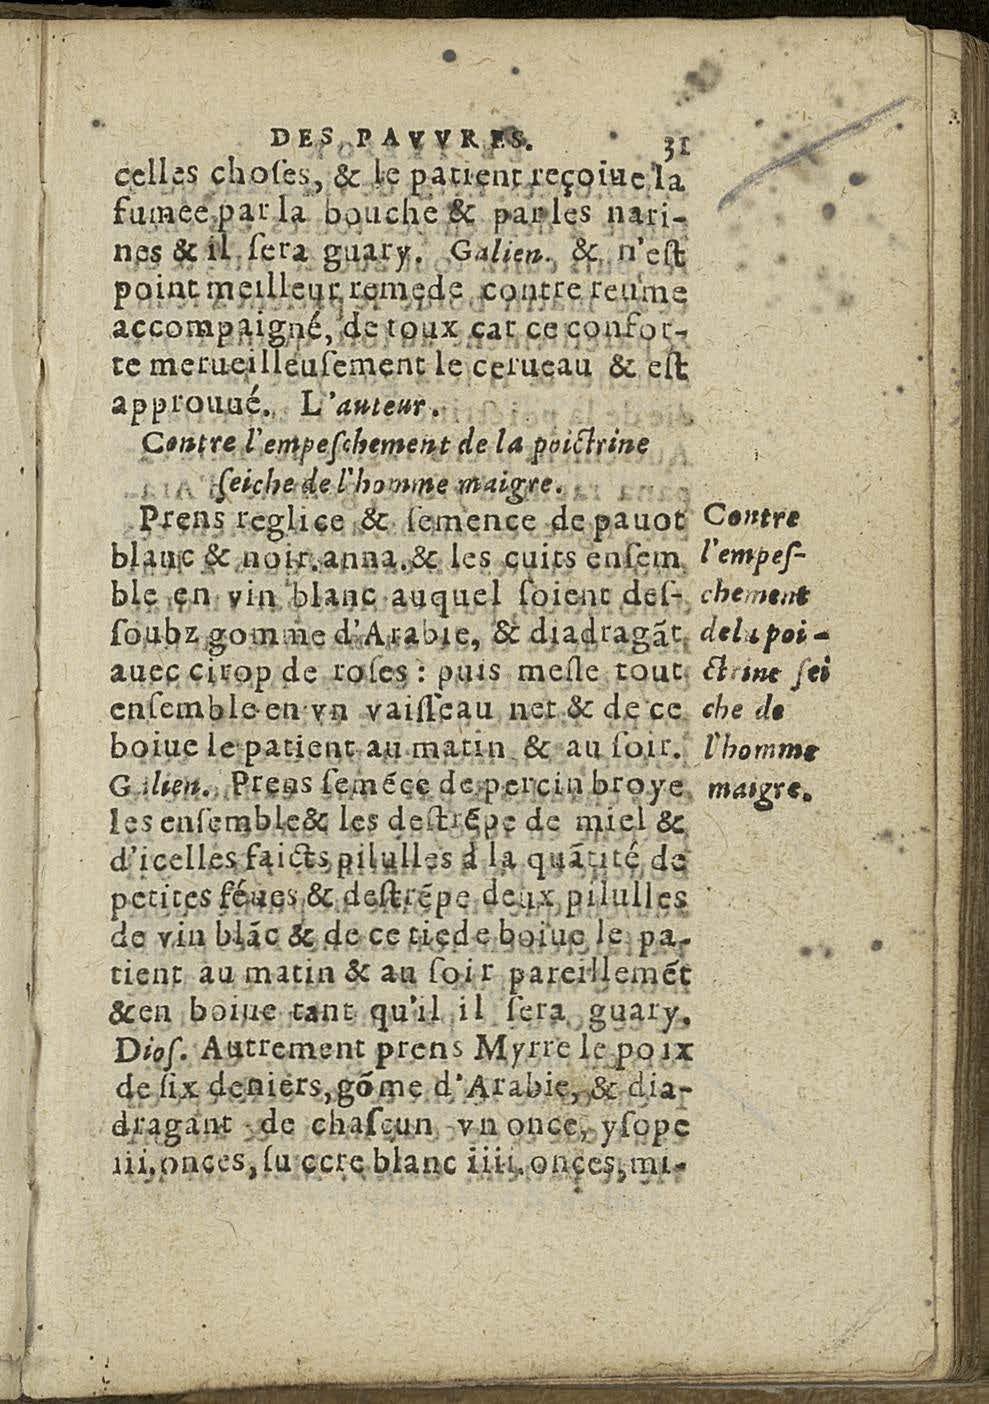 DES PAVVRES. 31
celles choſes, & le patient reçoiue la
fumee par la bouche & par les nari-
nes & il ſera guary. Galien. & n'eſt
point meilleur remede contre reume
accompaigné, de toux car ce confor-
te merueilleuſement le cerueau & eſt
approuué. L'auteur.
Contre l'empeſchement de la poictrine
ſeiche de l'homme maigre.
Prens reglice & ſemence de pauot
blanc & noir. anna. & les cuits enſem
ble en vin blanc auquel ſoient deſ-
ſoubz gomme d'Arabie, & diadragãt
auec cirop de roſes : puis meſle tout
enſemble en vn vaiſſeau net & de ce
boiue le patient au matin & au ſoir.
Galien. Prens ſeméce de percin broye
les enſemble& les deſtrẽpe de miel &
d'icelles faicts pilulles à la quãtité de
petites féues & deſtrẽpe deux pilulles
de vin blãc & de ce tiede boiue le pa-
tient au matin & au ſoir pareillemẽt
&en boiue tant qu'il il ſera guary.
Dioſ. Autrement prens Myrre le poix
de ſix deniers, gõme d'Arabie, & dia-
dragant de chaſcun vn once, yſope
iii. onces, ſuccre blanc iiii. onces, mi-
Contre
l'empeſ-
chement
de la poi-
ctrine ſei
che de
l'homme
maigre.